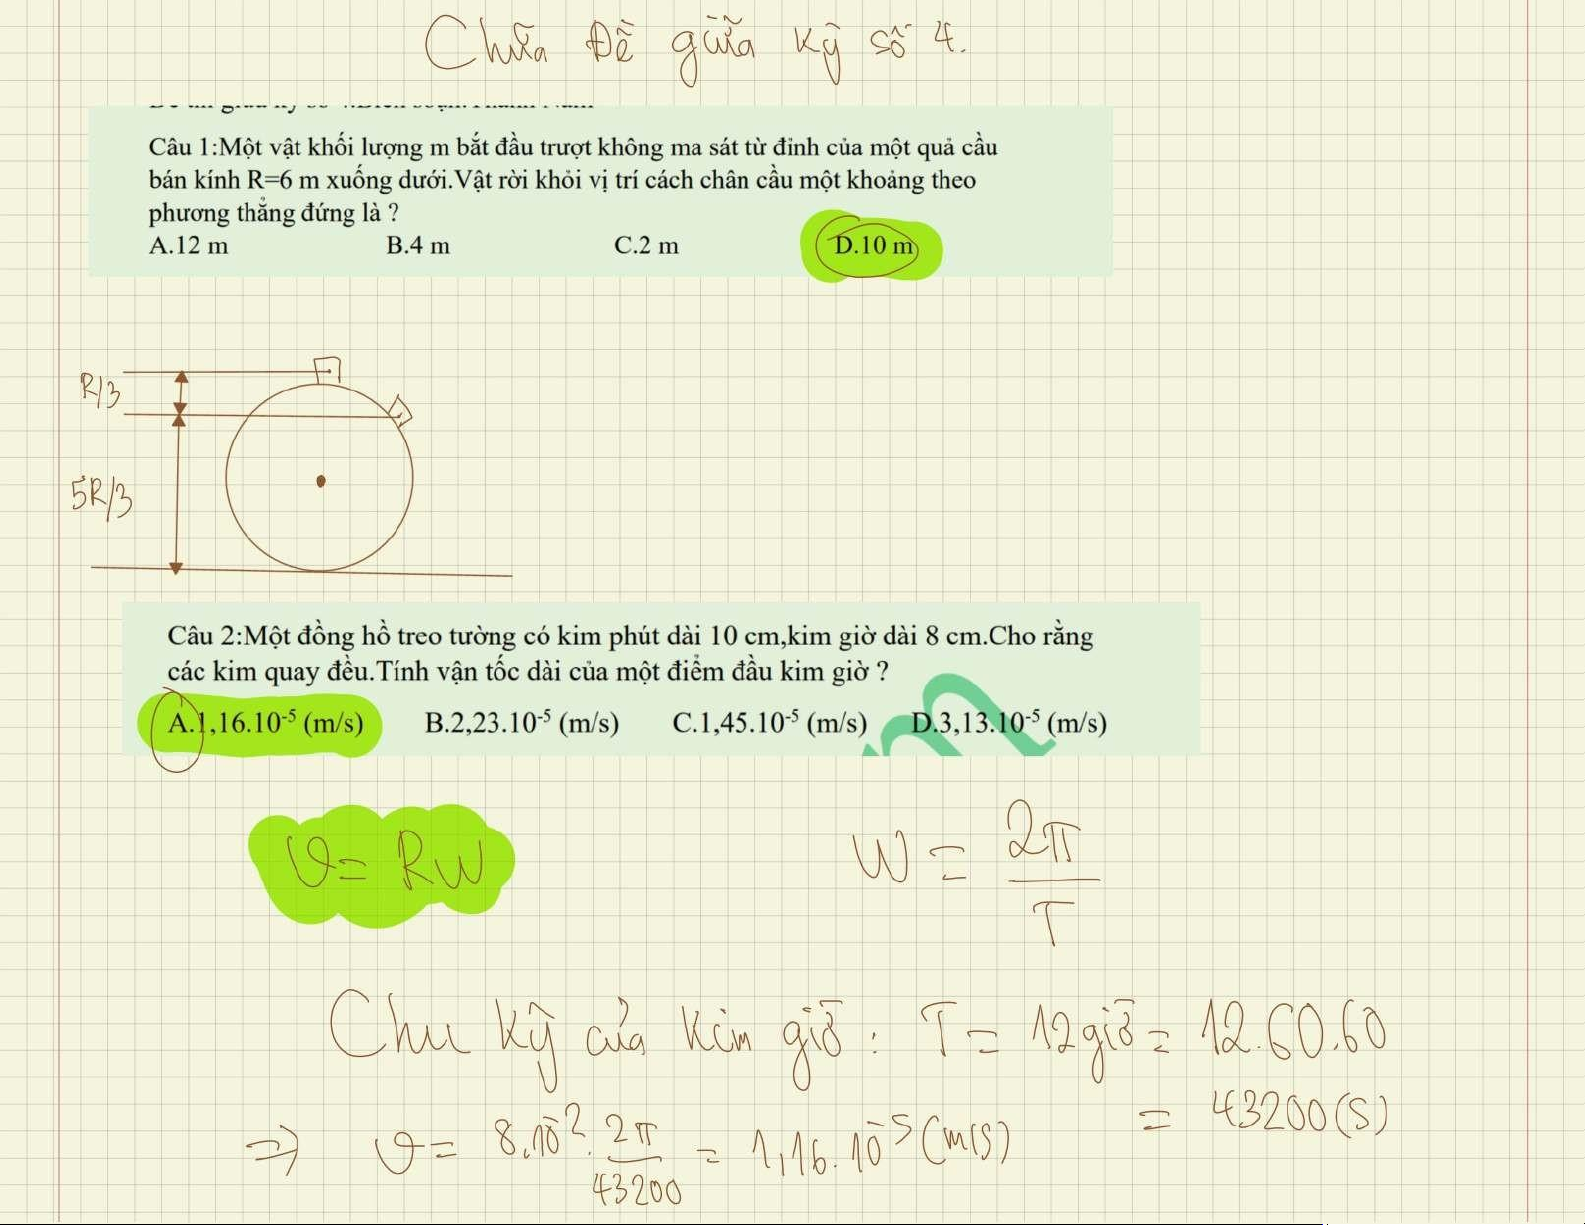 Chữa Đề giữa kỳ số 4.
Câu 1:Một vật khối lượng m bắt đầu trượt không ma sát từ đỉnh của một quả cầu
bán kính R=6 m xuống dưới.Vật rời khỏi vị trí cách chân cầu một khoảng theo
phương thẳng đứng là ?
A.12 m B.4 m C.2 m D.10 m
R/3
5R/3
Câu 2:Một đồng hồ treo tường có kim phút dài 10 cm,kim giờ dài 8 cm.Cho rằng
các kim quay đều.Tính vận tốc dài của một điểm đầu kim giờ ?
A.1,16.10⁻⁵ (m/s) B.2,23.10⁻⁵ (m/s) C.1,45.10⁻⁵ (m/s) D.3,13.10⁻⁵ (m/s)
v = RW W = 2π/T
Chu kỳ của kim giờ : T = 12 giờ = 12.60.60
= 43200 (s)
⇒ v = 8.10⁻² . 2π/43200 = 1,16.10⁻⁵ (m/s)